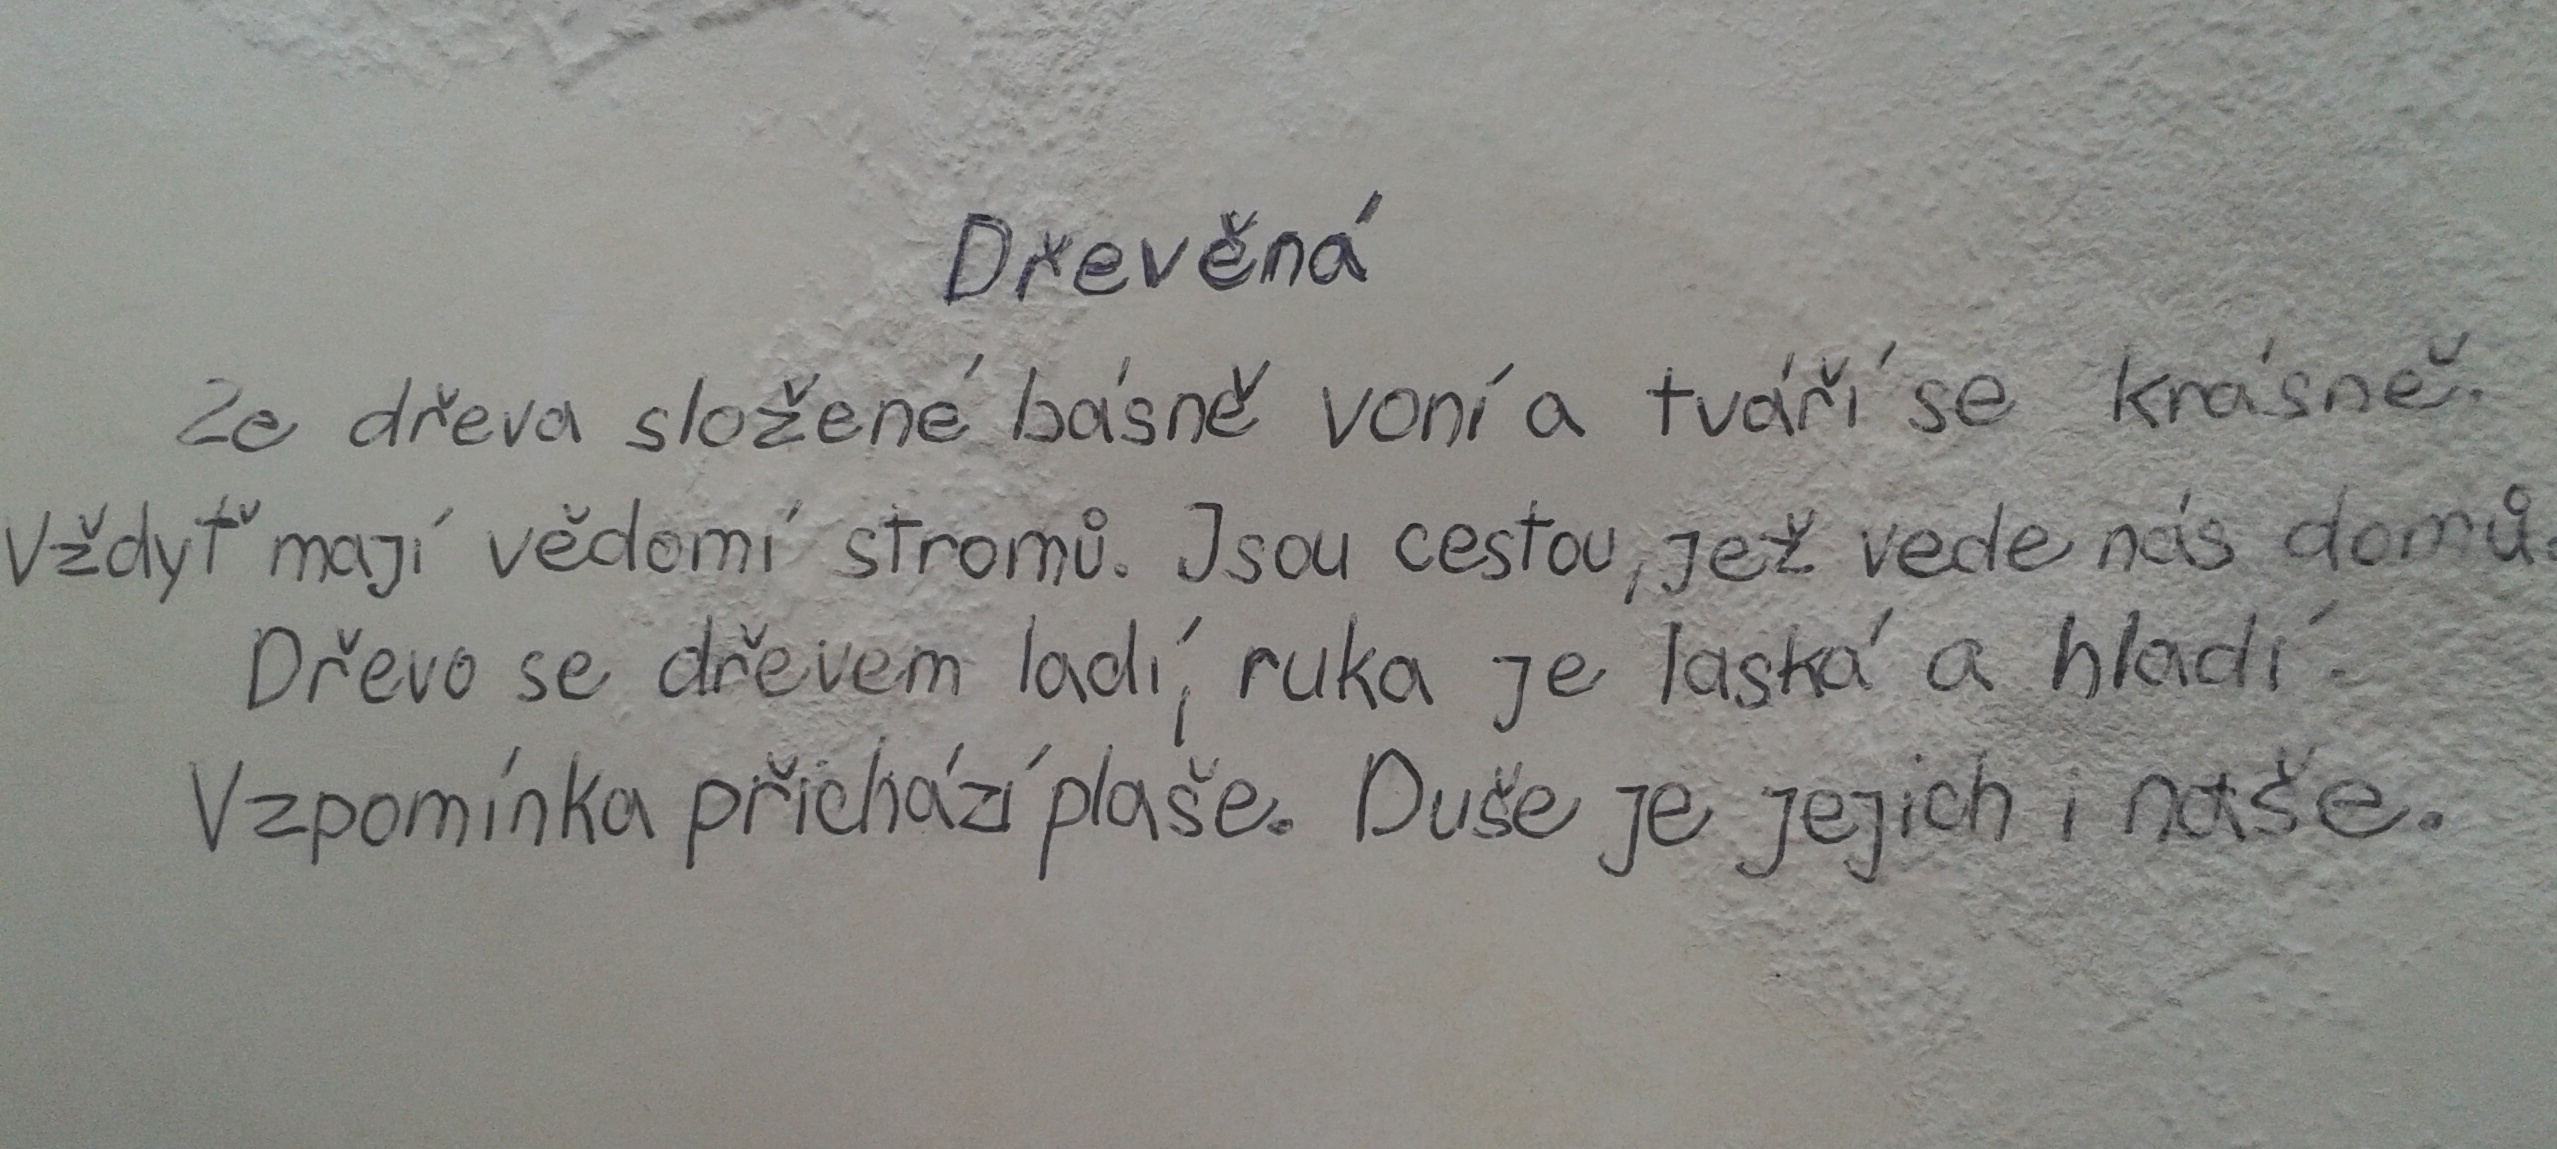 Dřevěná
Ze dřeva složené básně voní a tváří se krásně.
Vždyť mají vědomí stromů. Jsou cestou, jež vede nás domů.
Dřevo se dřevem ladí, ruka je laská a hladí.
Vzpomínka přichází plaše. Duše je jejich i naše.